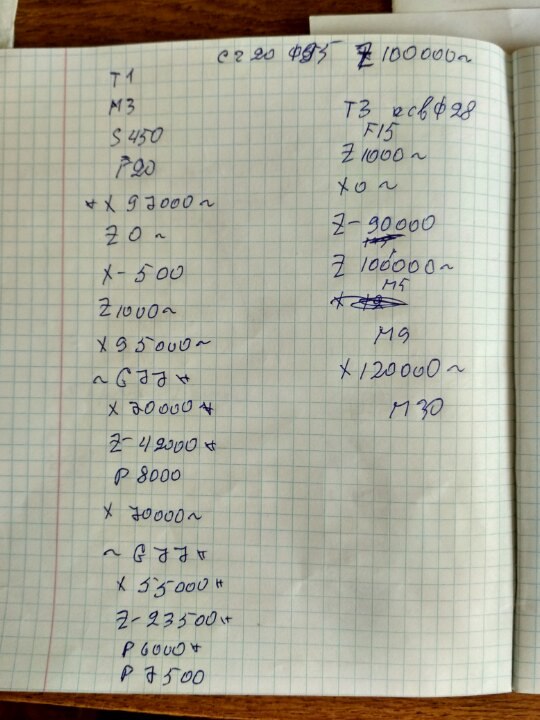 ст 20 ф95
T1
M3
S 450
F20
* X 97000 ~
Z 0 ~
X - 500
Z 1000 ~
X 95000 ~
~ G 77 *
X 70000 *
Z - 42000 *
P 8000
X 70000 ~
~ G 77 *
X 55000 *
Z - 23500 *
P 6000 *
P 7500
Z 100000 ~
T3 ф28
F15
Z 1000 ~
X 0 ~
Z - 90000
Z 100000 ~
M5
M9
X 120000 ~
M30